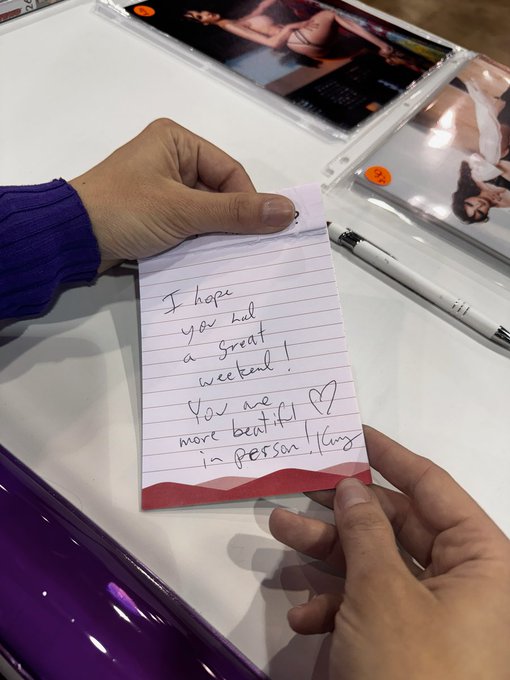 I hope
you had
a great
weekend!
You are
more beatiful ♡
in person!